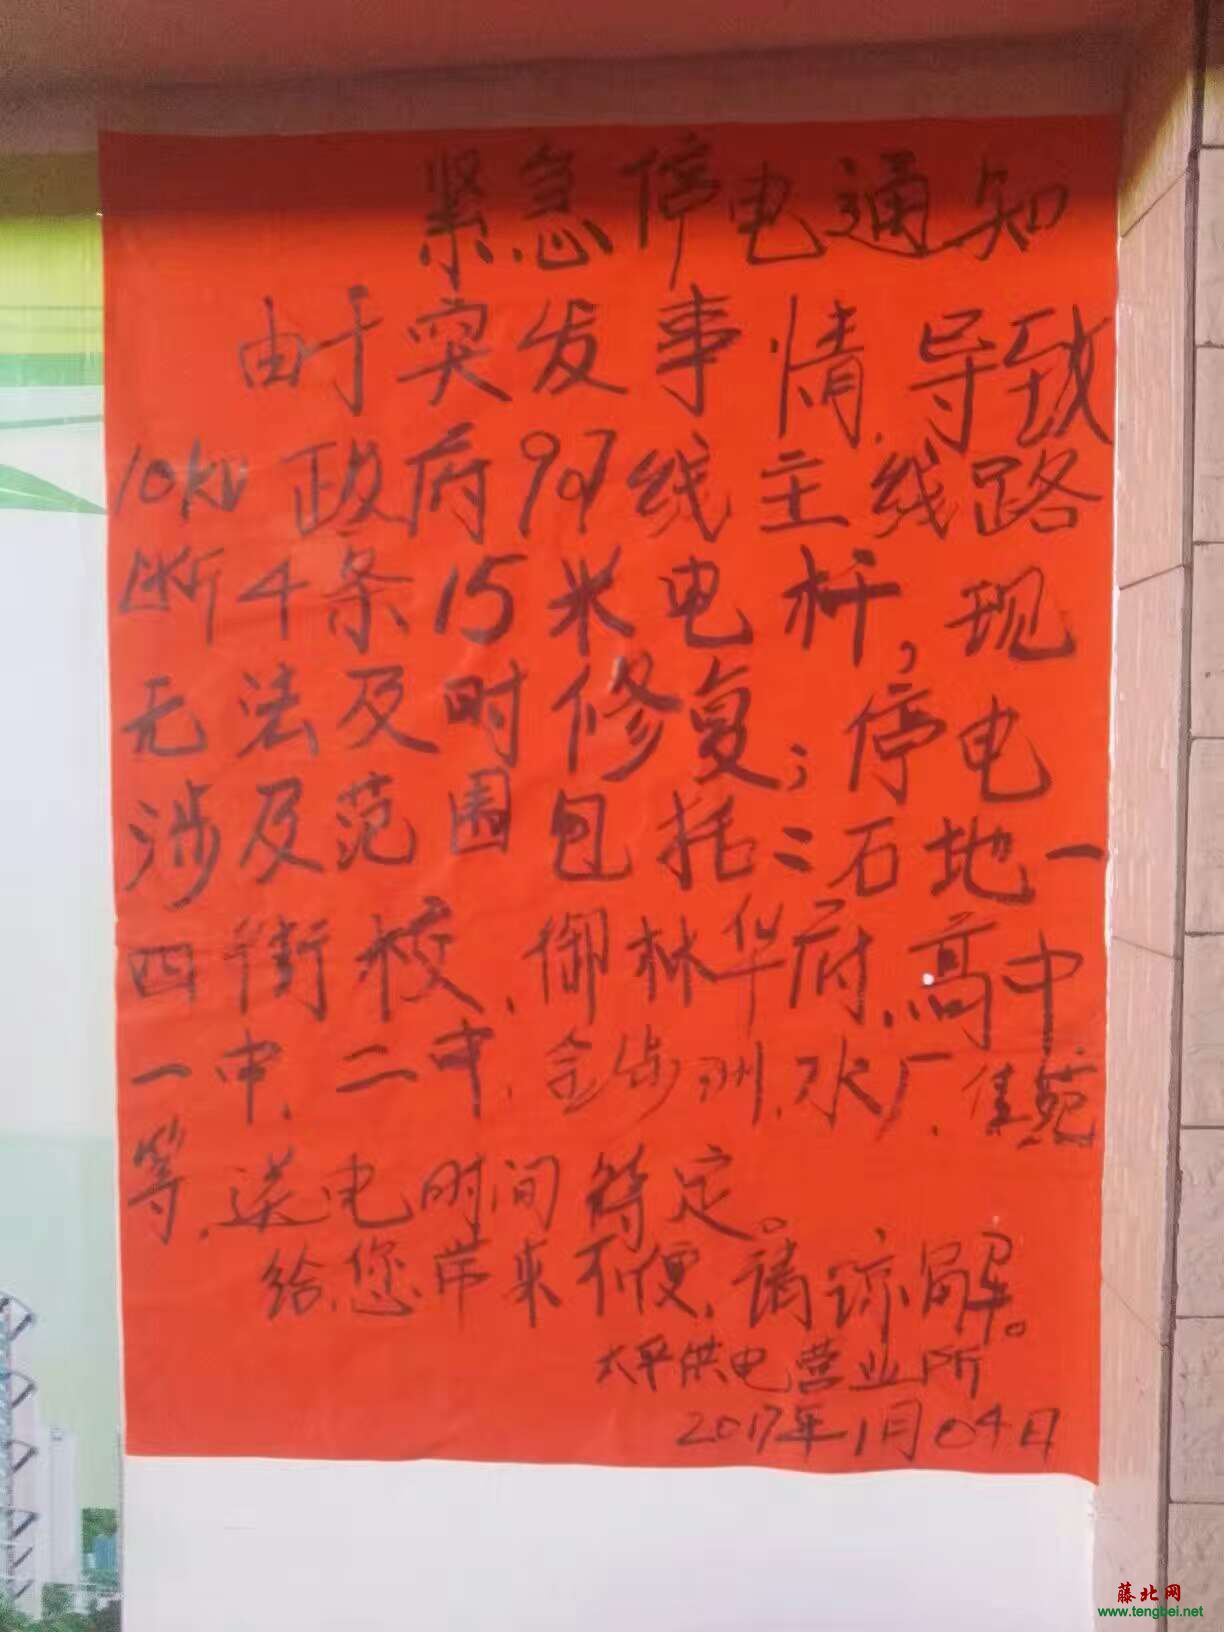 紧急停电通知
由于突发事情,导致
10kV政府907线主线路
断4条15米电杆,现
无法及时修复;停电
涉及范围包括二石地一
四街校、御林华府、高中
一中、二中、金沙洲、水厂、佳苑
等,送电时间待定。
给您带来不便,请谅解。
太平供电营业所
2017年1月04日
藤北网
www.tengbei.net